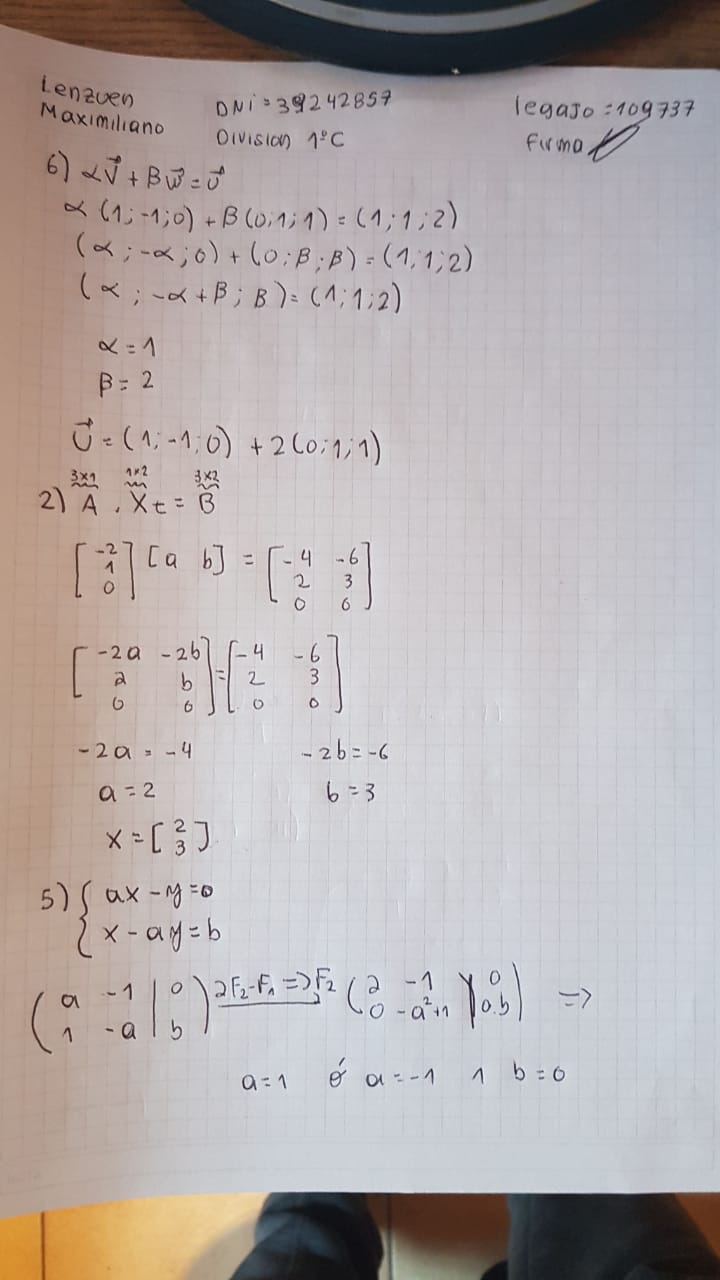 Lenzuen
Maximiliano
DNi = 39242857
Division 1°C
legajo = 109737
Firma
6) α V⃗ + B W⃗ = U⃗
α (1;-1;0) + B (0;1;1) = (1;1;2)
(α ; -α ; 0) + (0 ; B ; B) = (1;1;2)
(α ; -α + B ; B) = (1;1;2)
α = 1
B = 2
U⃗ = (1;-1;0) + 2(0;1;1)
3x1 1x2 3x2
2) A . Xt = B
[-2 1 0] [a b] = [-4 -6
2 3
0 0]
[-2a -2b
a b
0 0] = [-4 -6
2 3
0 0]
-2a = -4 -2b = -6
a = 2 b = 3
X = [2 3]
5) { ax - y = 0
x - ay = b
(a -1 | 0
1 -a | b) aF2 - F1 => F2 (a -1 | 0
0 -a²+1 | a.b) =>
a = 1 ó a = -1 ∧ b = 0